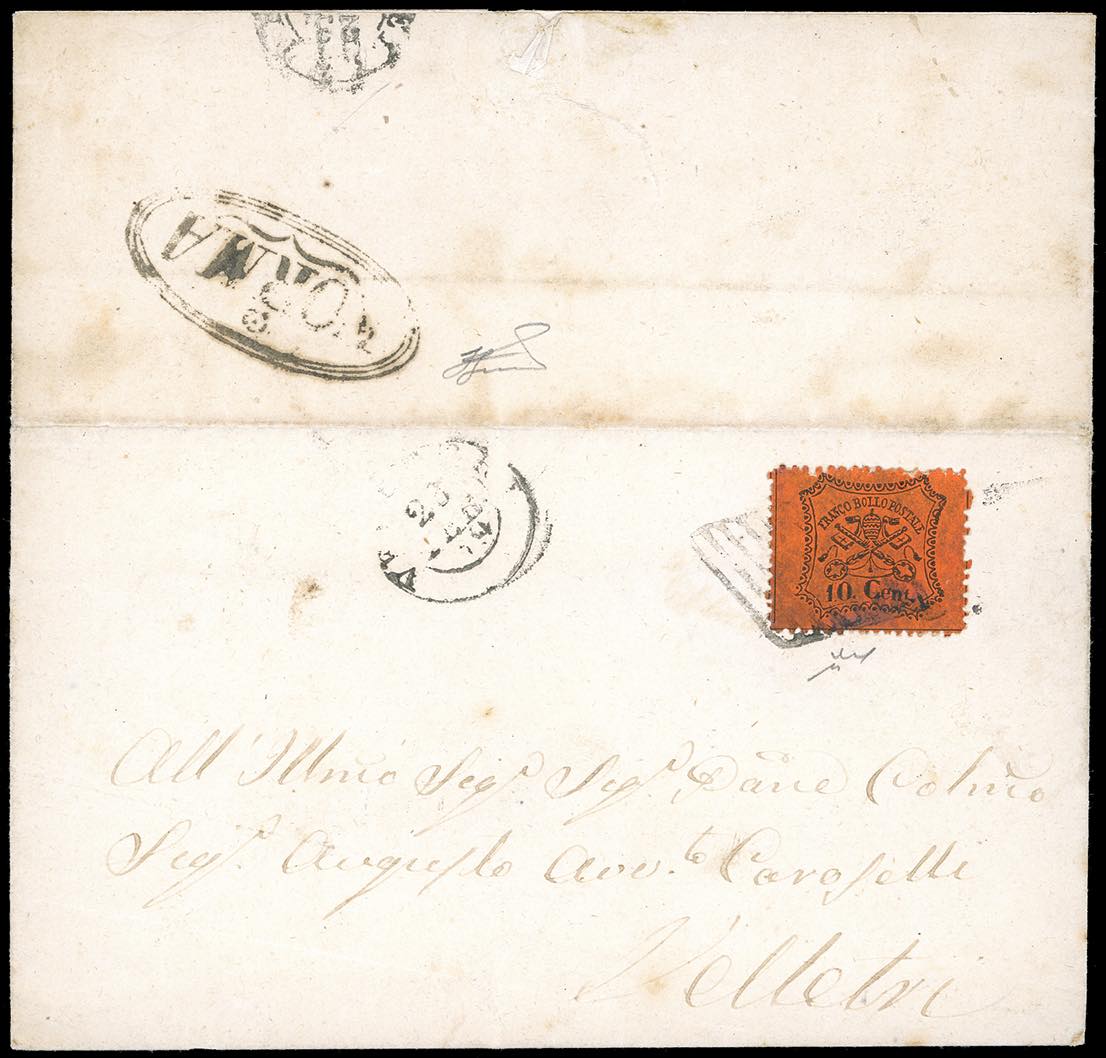 NORMA
FRANCO BOLLO POSTALE
10. Cent.
All' Illmõ Sigʳ. Sigʳ. Pãne Colmõ
Sigʳ. Augusto Avv.ᵗᵒ Caroselli
Velletri